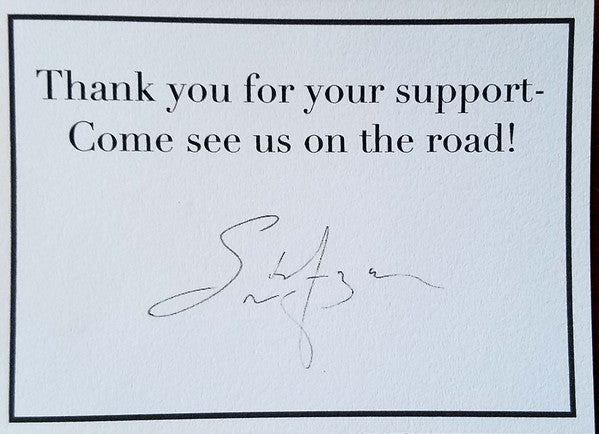 Thank you for your support-
Come see us on the road!